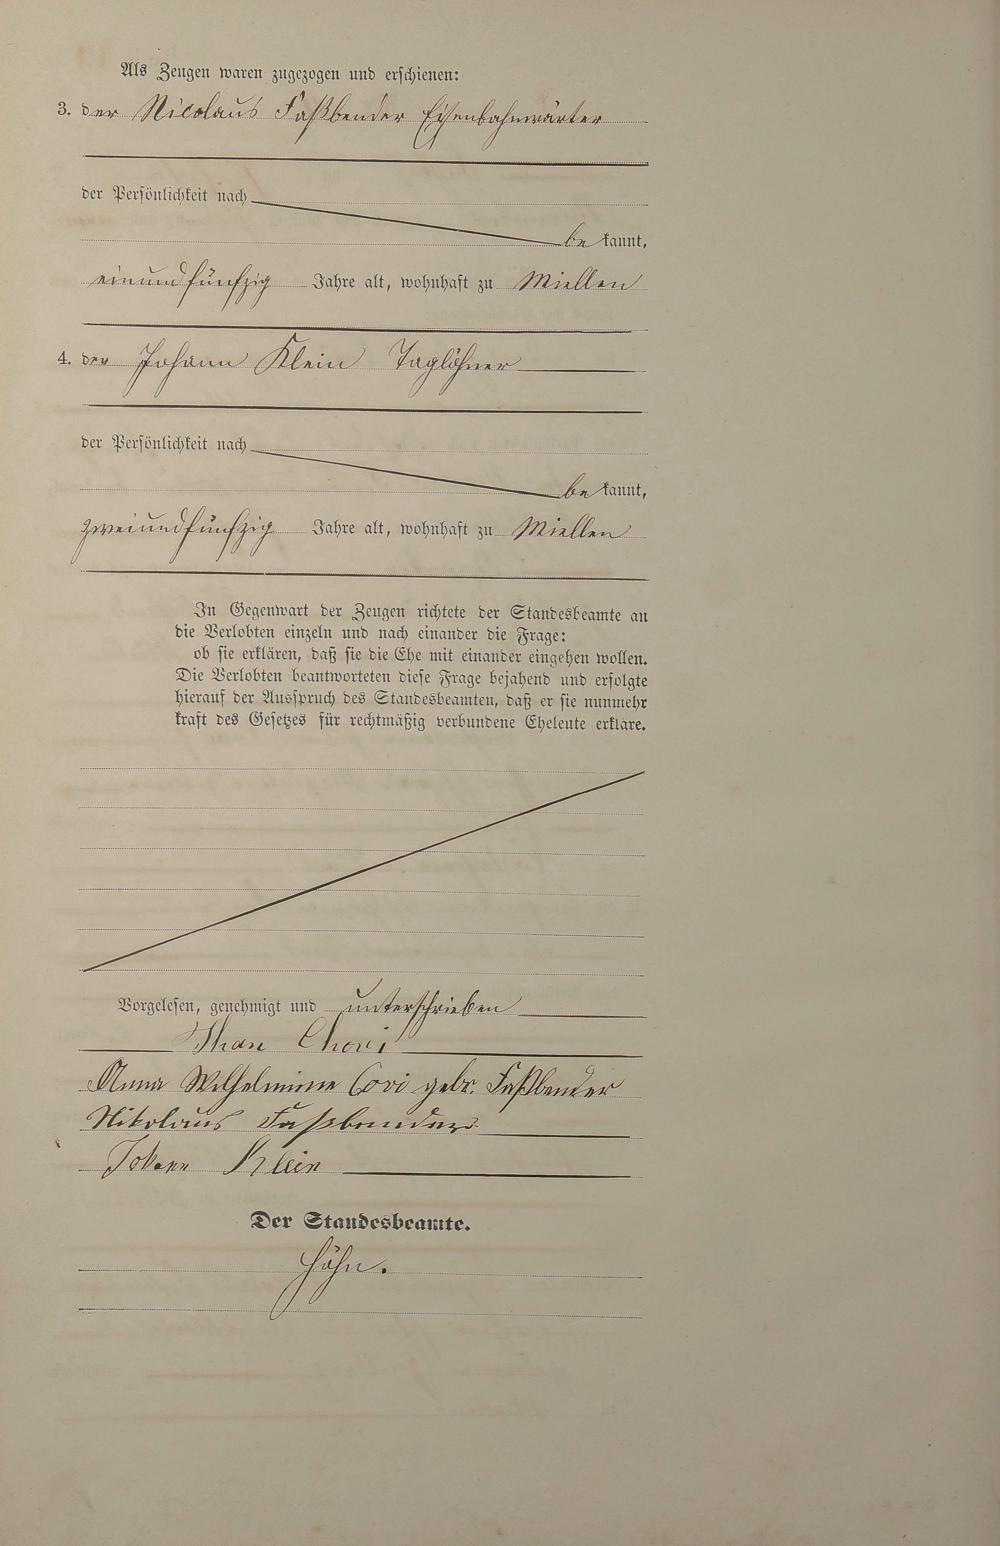 Als Zeugen waren zugezogen und erschienen:
3. der Nicolaus Faßbender Eisenbahnwärter
der Persönlichkeit nach
be kannt,
einundfünfzig Jahre alt, wohnhaft zu Miellen
4. der Johann Klein Taglöhner
der Persönlichkeit nach
be kannt,
zweiundfünfzig Jahre alt, wohnhaft zu Miellen
In Gegenwart der Zeugen richtete der Standesbeamte an
die Verlobten einzeln und nach einander die Frage:
ob sie erklären, daß sie die Ehe mit einander eingehen wollen.
Die Verlobten beantworteten diese Frage bejahend und erfolgte
hierauf der Ausspruch des Standesbeamten, daß er sie nunmehr
kraft des Gesetzes für rechtmäßig verbundene Eheleute erkläre.
Vorgelesen, genehmigt und unterschrieben
Chovi
Anna Wilhelmine Covi gebr. Faßbender
Nikolaus Faßbender
Johann Klein
Der Standesbeamte.
Höhn.